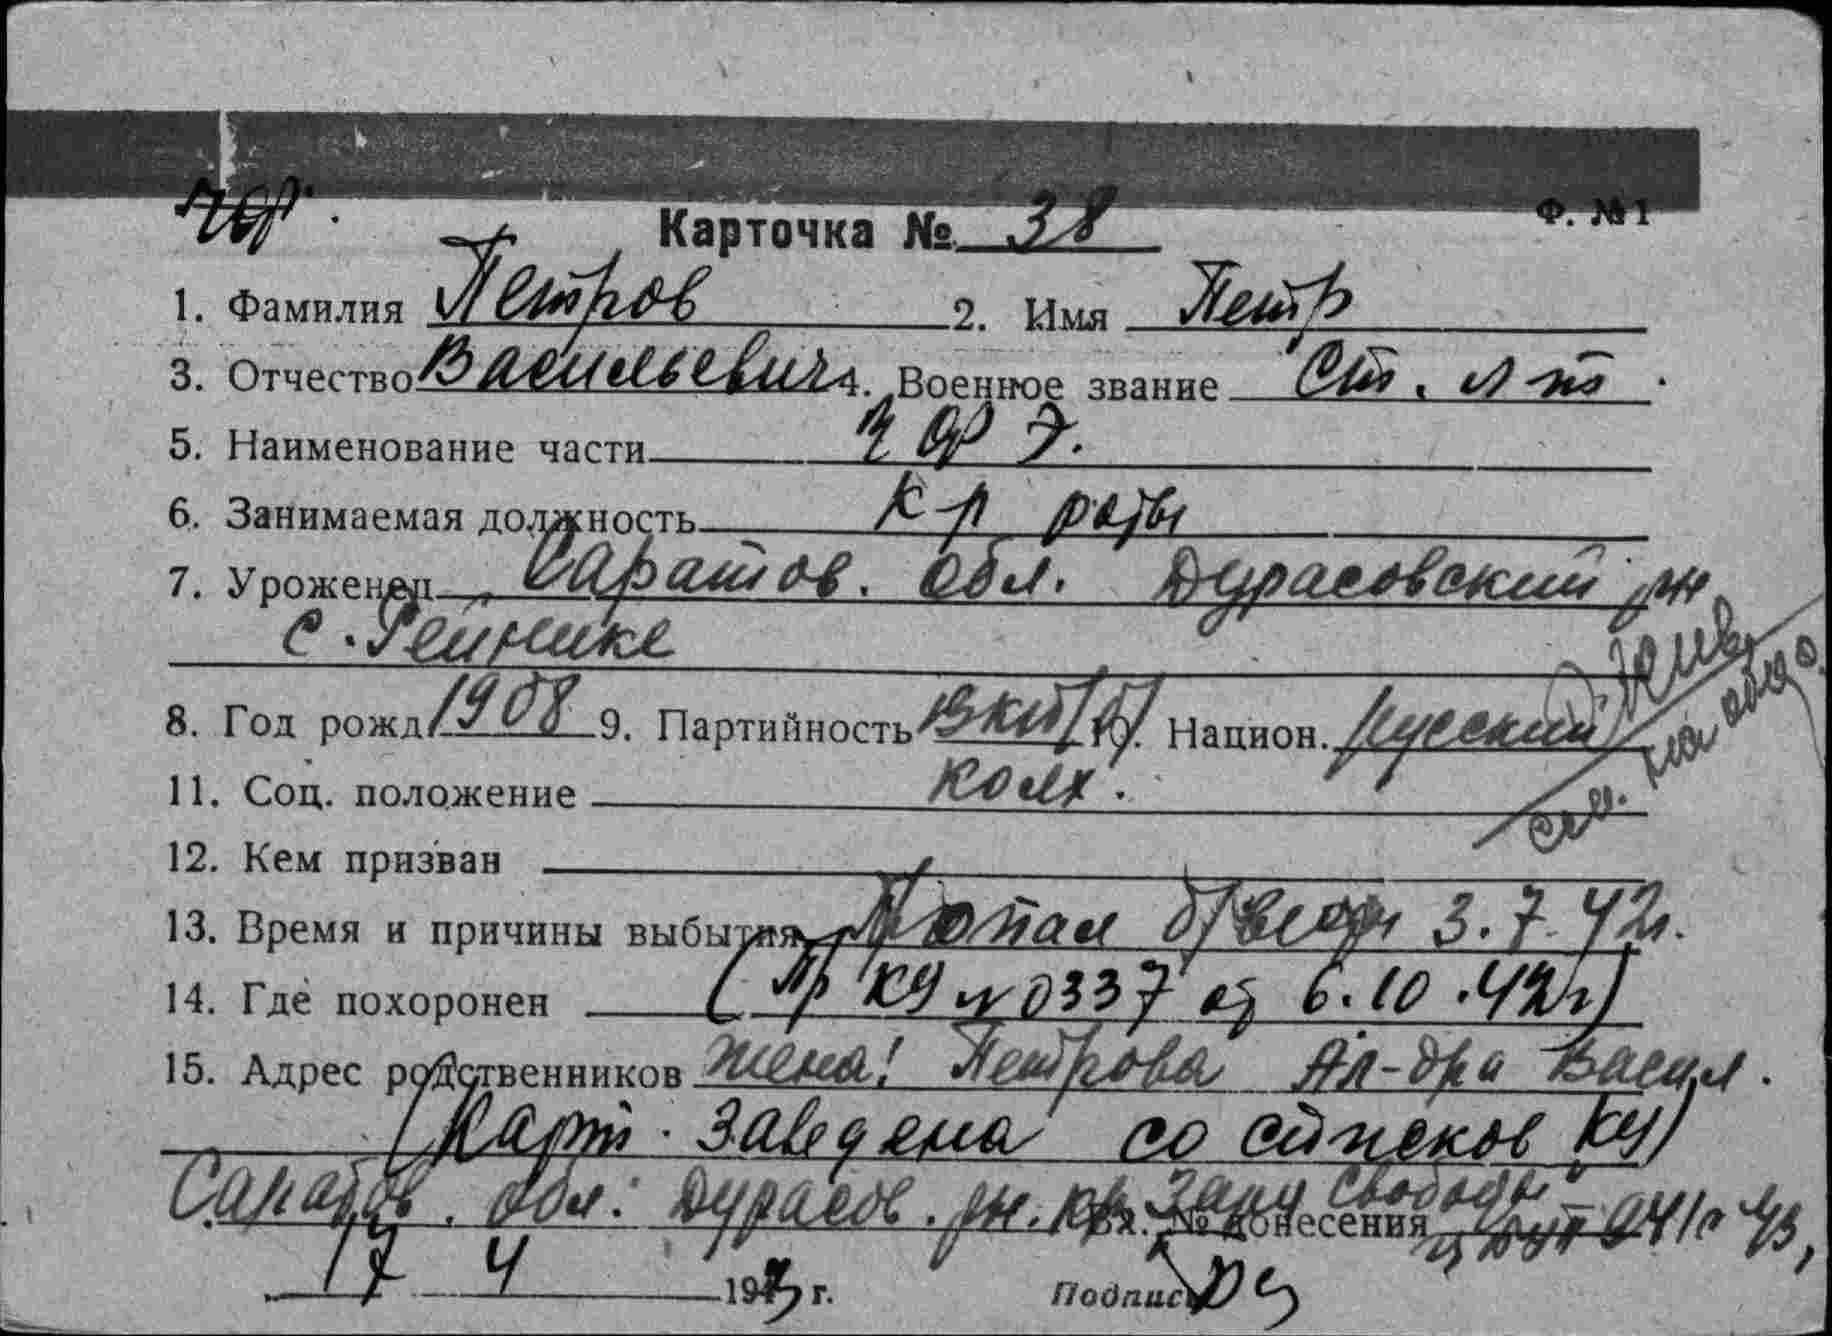 Ф. №1
Карточка № 38
1. Фамилия Петров 2. Имя Петр
3. Отчество Васильевич 4. Военное звание Ст. л-т.
5. Наименование части
6. Занимаемая должность к-р роты
7. Уроженец Саратов. обл. Дурасовский рн
с. Рейнике
8. Год рожд. 1908 9. Партийность ВКП/б/ 10. Национ. русский
11. Соц. положение колх.
12. Кем призван
13. Время и причины выбытия Пропал б/вести 3.7.42г.
14. Где похоронен (Пр КУ №0337 от 6.10.42г)
15. Адрес родственников жена: Петрова Ал-дра Васил.
(Карт. заведена со списков КУ)
Саратов. обл. Дурасов. рн. Свободы
Вх. № донесения
17 4 1943 г. Подпись
см. на обор.